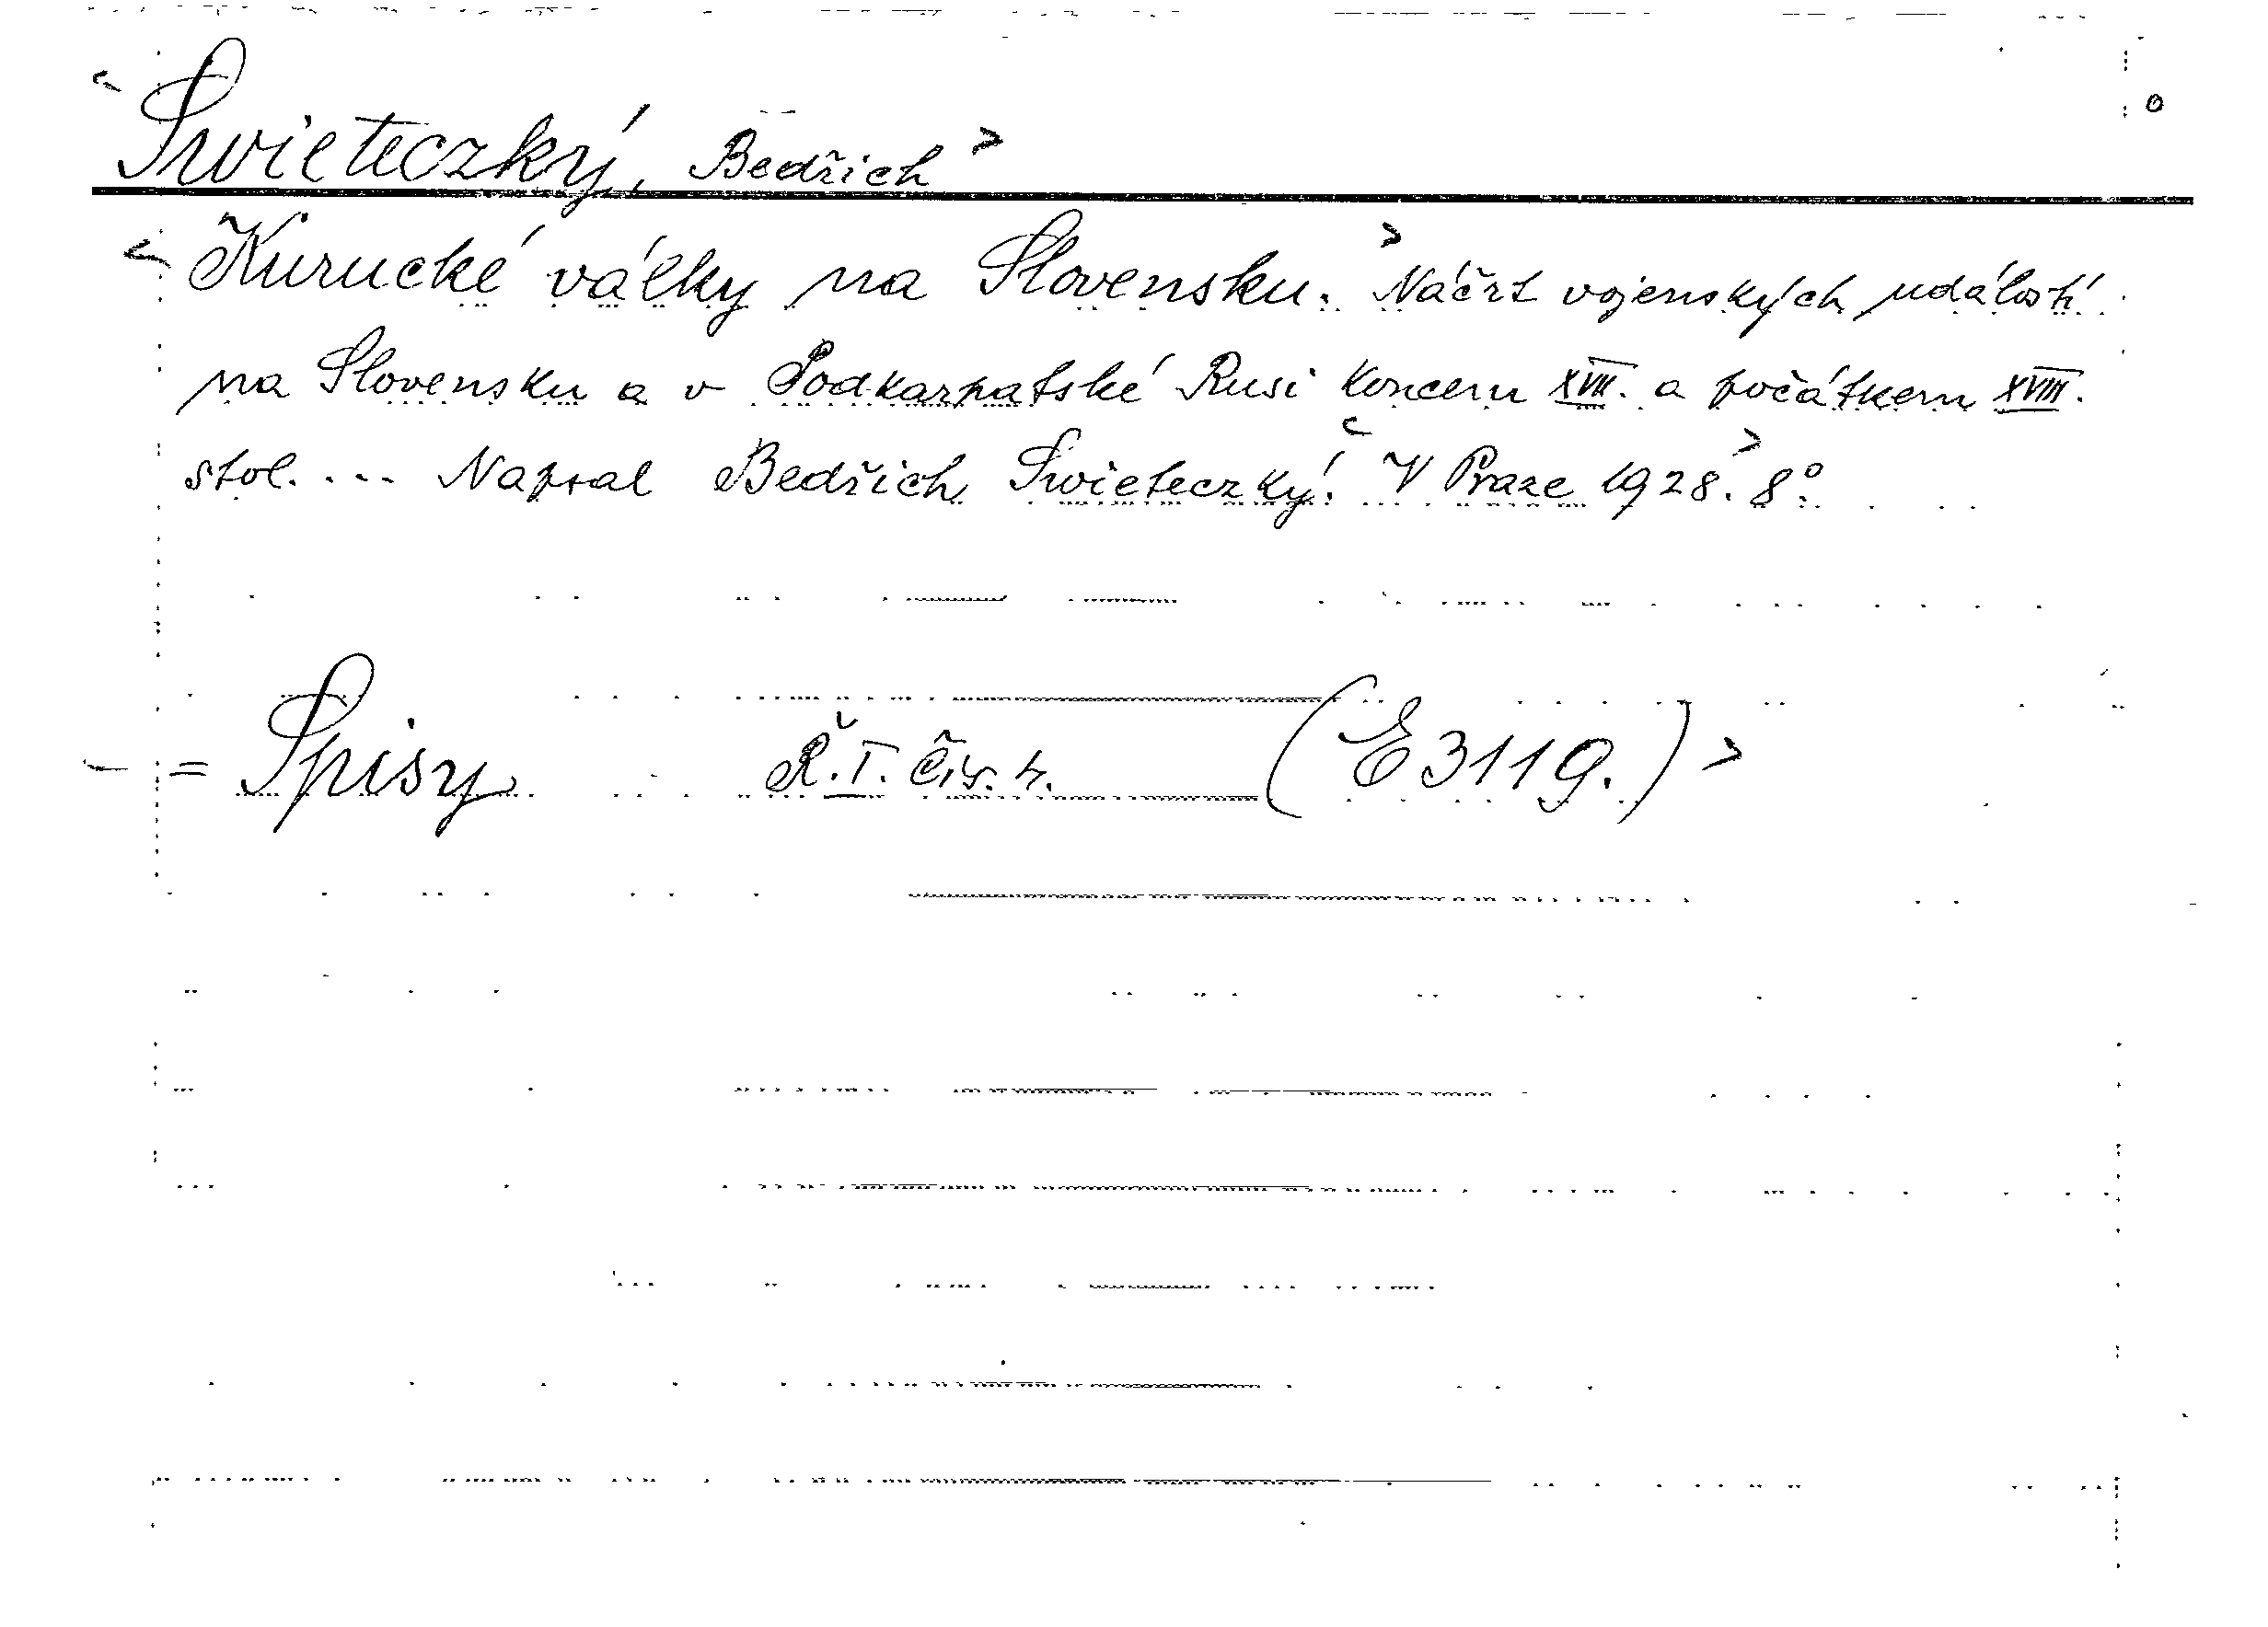 Swieteczký, Bedřich
Kurucké války na Slovensku. Náčrt vojenských událostí
na Slovensku a v Podkarpatské Rusi koncem XVII. a počátkem XVIII.
stol. ... Napsal Bedřich Swieteczký. V Praze 1928. 8°.
= Spisy Ř. I. Čís. 4. (E 3119.)